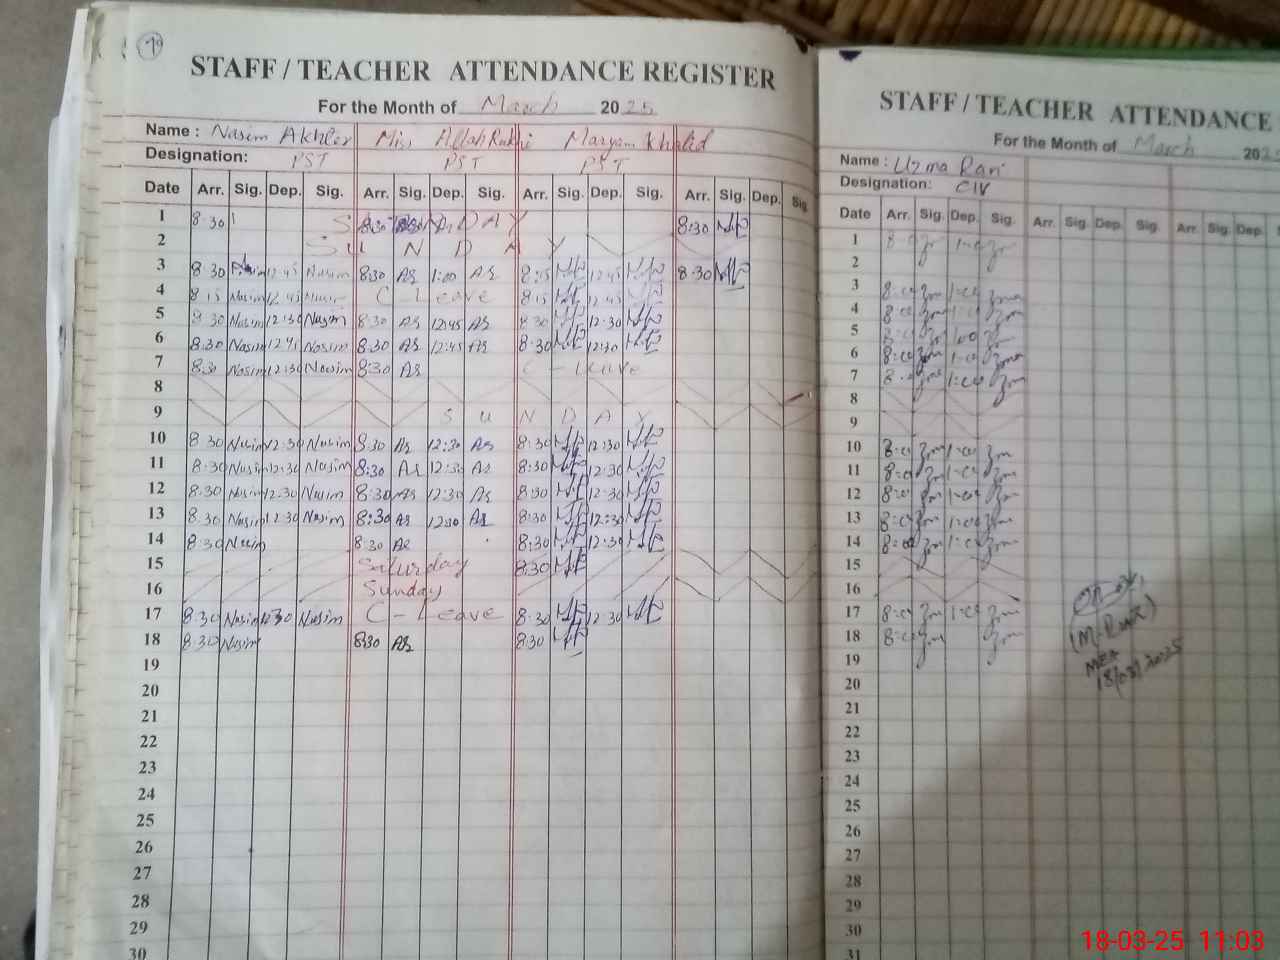 79
STAFF / TEACHER ATTENDANCE REGISTER
For the Month of March 2025
Name : Nasim Akhter Miss Allah Rakhi Maryam Khalid
Designation: PST PST PST
Date Arr. Sig. Dep. Sig. Arr. Sig. Dep. Sig. Arr. Sig. Dep. Sig. Arr. Sig. Dep. Sig.
1 8:30 8:30 8:30
2 S U N D A Y
3 8:30 12:45 Nasim 8:30 As 1:00 As 8:15 12:45 8:30
4 8:15 Nasim 12:45 Nasim C - Leave 8:15 12:45
5 8:30 Nasim 12:30 Nasim 8:30 As 12:45 As 8:30 12:30
6 8:30 Nasim 12:45 Nasim 8:30 As 12:45 As 8:30 12:30
7 8:30 Nasim 12:30 Nasim 8:30 As C - Leave
8
9 S U N D A Y
10 8:30 Nasim 12:30 Nasim 8:30 As 12:30 As 8:30 12:30
11 8:30 Nasim 12:30 Nasim 8:30 As 12:30 As 8:30 12:30
12 8:30 Nasim 12:30 Nasim 8:30 As 12:30 As 8:30 12:30
13 8:30 Nasim 12:30 Nasim 8:30 As 12:30 As 8:30 12:30
14 8:30 Nasim 8:30 As 8:30 12:30
15 Saturday 8:30
16 Sunday
17 8:30 Nasim 12:30 Nasim C - Leave 8:30 12:30
18 8:30 Nasim 8:30 As 8:30
19
20
21
22
23
24
25
26
27
28
29
30
STAFF / TEACHER ATTENDANCE
For the Month of March 202
Name : Uzma Rani
Designation: CIV
Date Arr. Sig. Dep. Sig. Arr. Sig. Dep. Sig. Arr. Sig. Dep.
1 8:00 1:00
2
3 8:00 1:00
4 8:00 1:00
5 8:00 1:00
6 8:00 1:00
7 8:00 1:00
8
9
10 8:00 1:00
11 8:00 1:00
12 8:00 1:00
13 8:00 1:00
14 8:00 1:00
15
16
17 8:00 1:00
18 8:00
19
20
21
22
23
24
25
26
27
28
29
30
31
MEA
18/03/2025
18-03-25 11:03